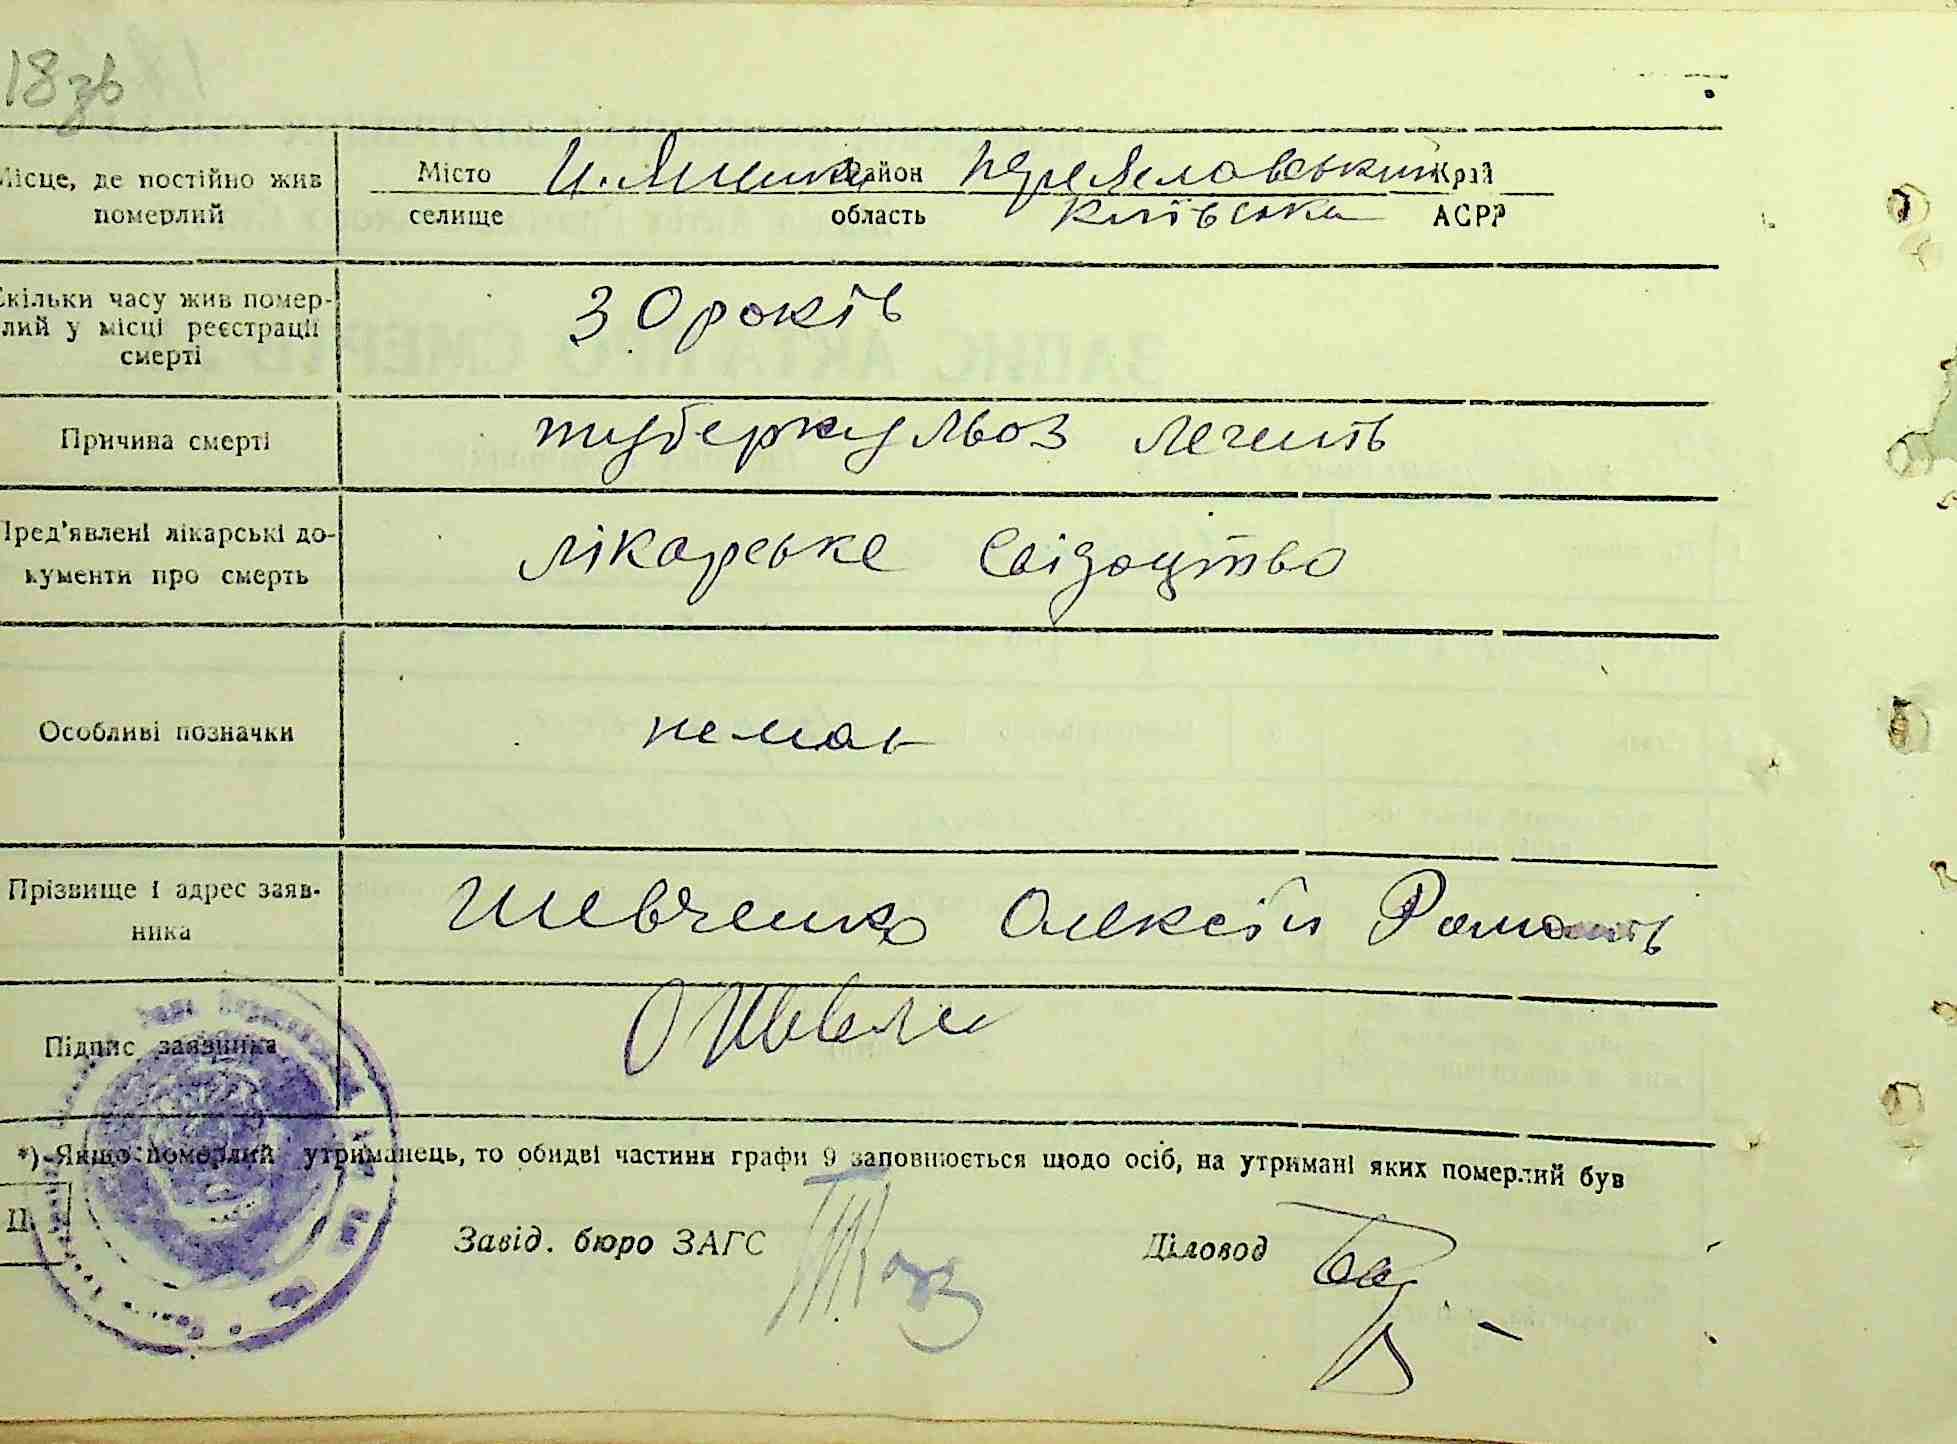 18 зв
Місце, де постійно жив Місто район Переяславський Край
померлий селище область Київська АСРР
Скільки часу жив помер-
лий у місці реєстрації
смерті
30 років
Причина смерті туберкульоз легень
Пред'явлені лікарські до-
кументи про смерть
лікарське свідоцтво
Особливі позначки немає
Прізвище і адрес заяв-
ника
Шевченко Олексій
Підпис заявника
*) Якщо померлий утриманець, то обидві частини графи 9 заповнюється щодо осіб, на утримані яких померлий був
П
Завід. бюро ЗАГС Діловод